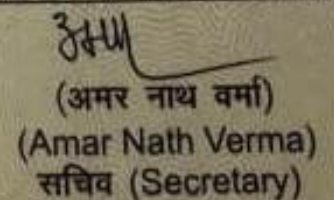 अमर
(अमर नाथ वर्मा)
(Amar Nath Verma)
सचिव (Secretary)